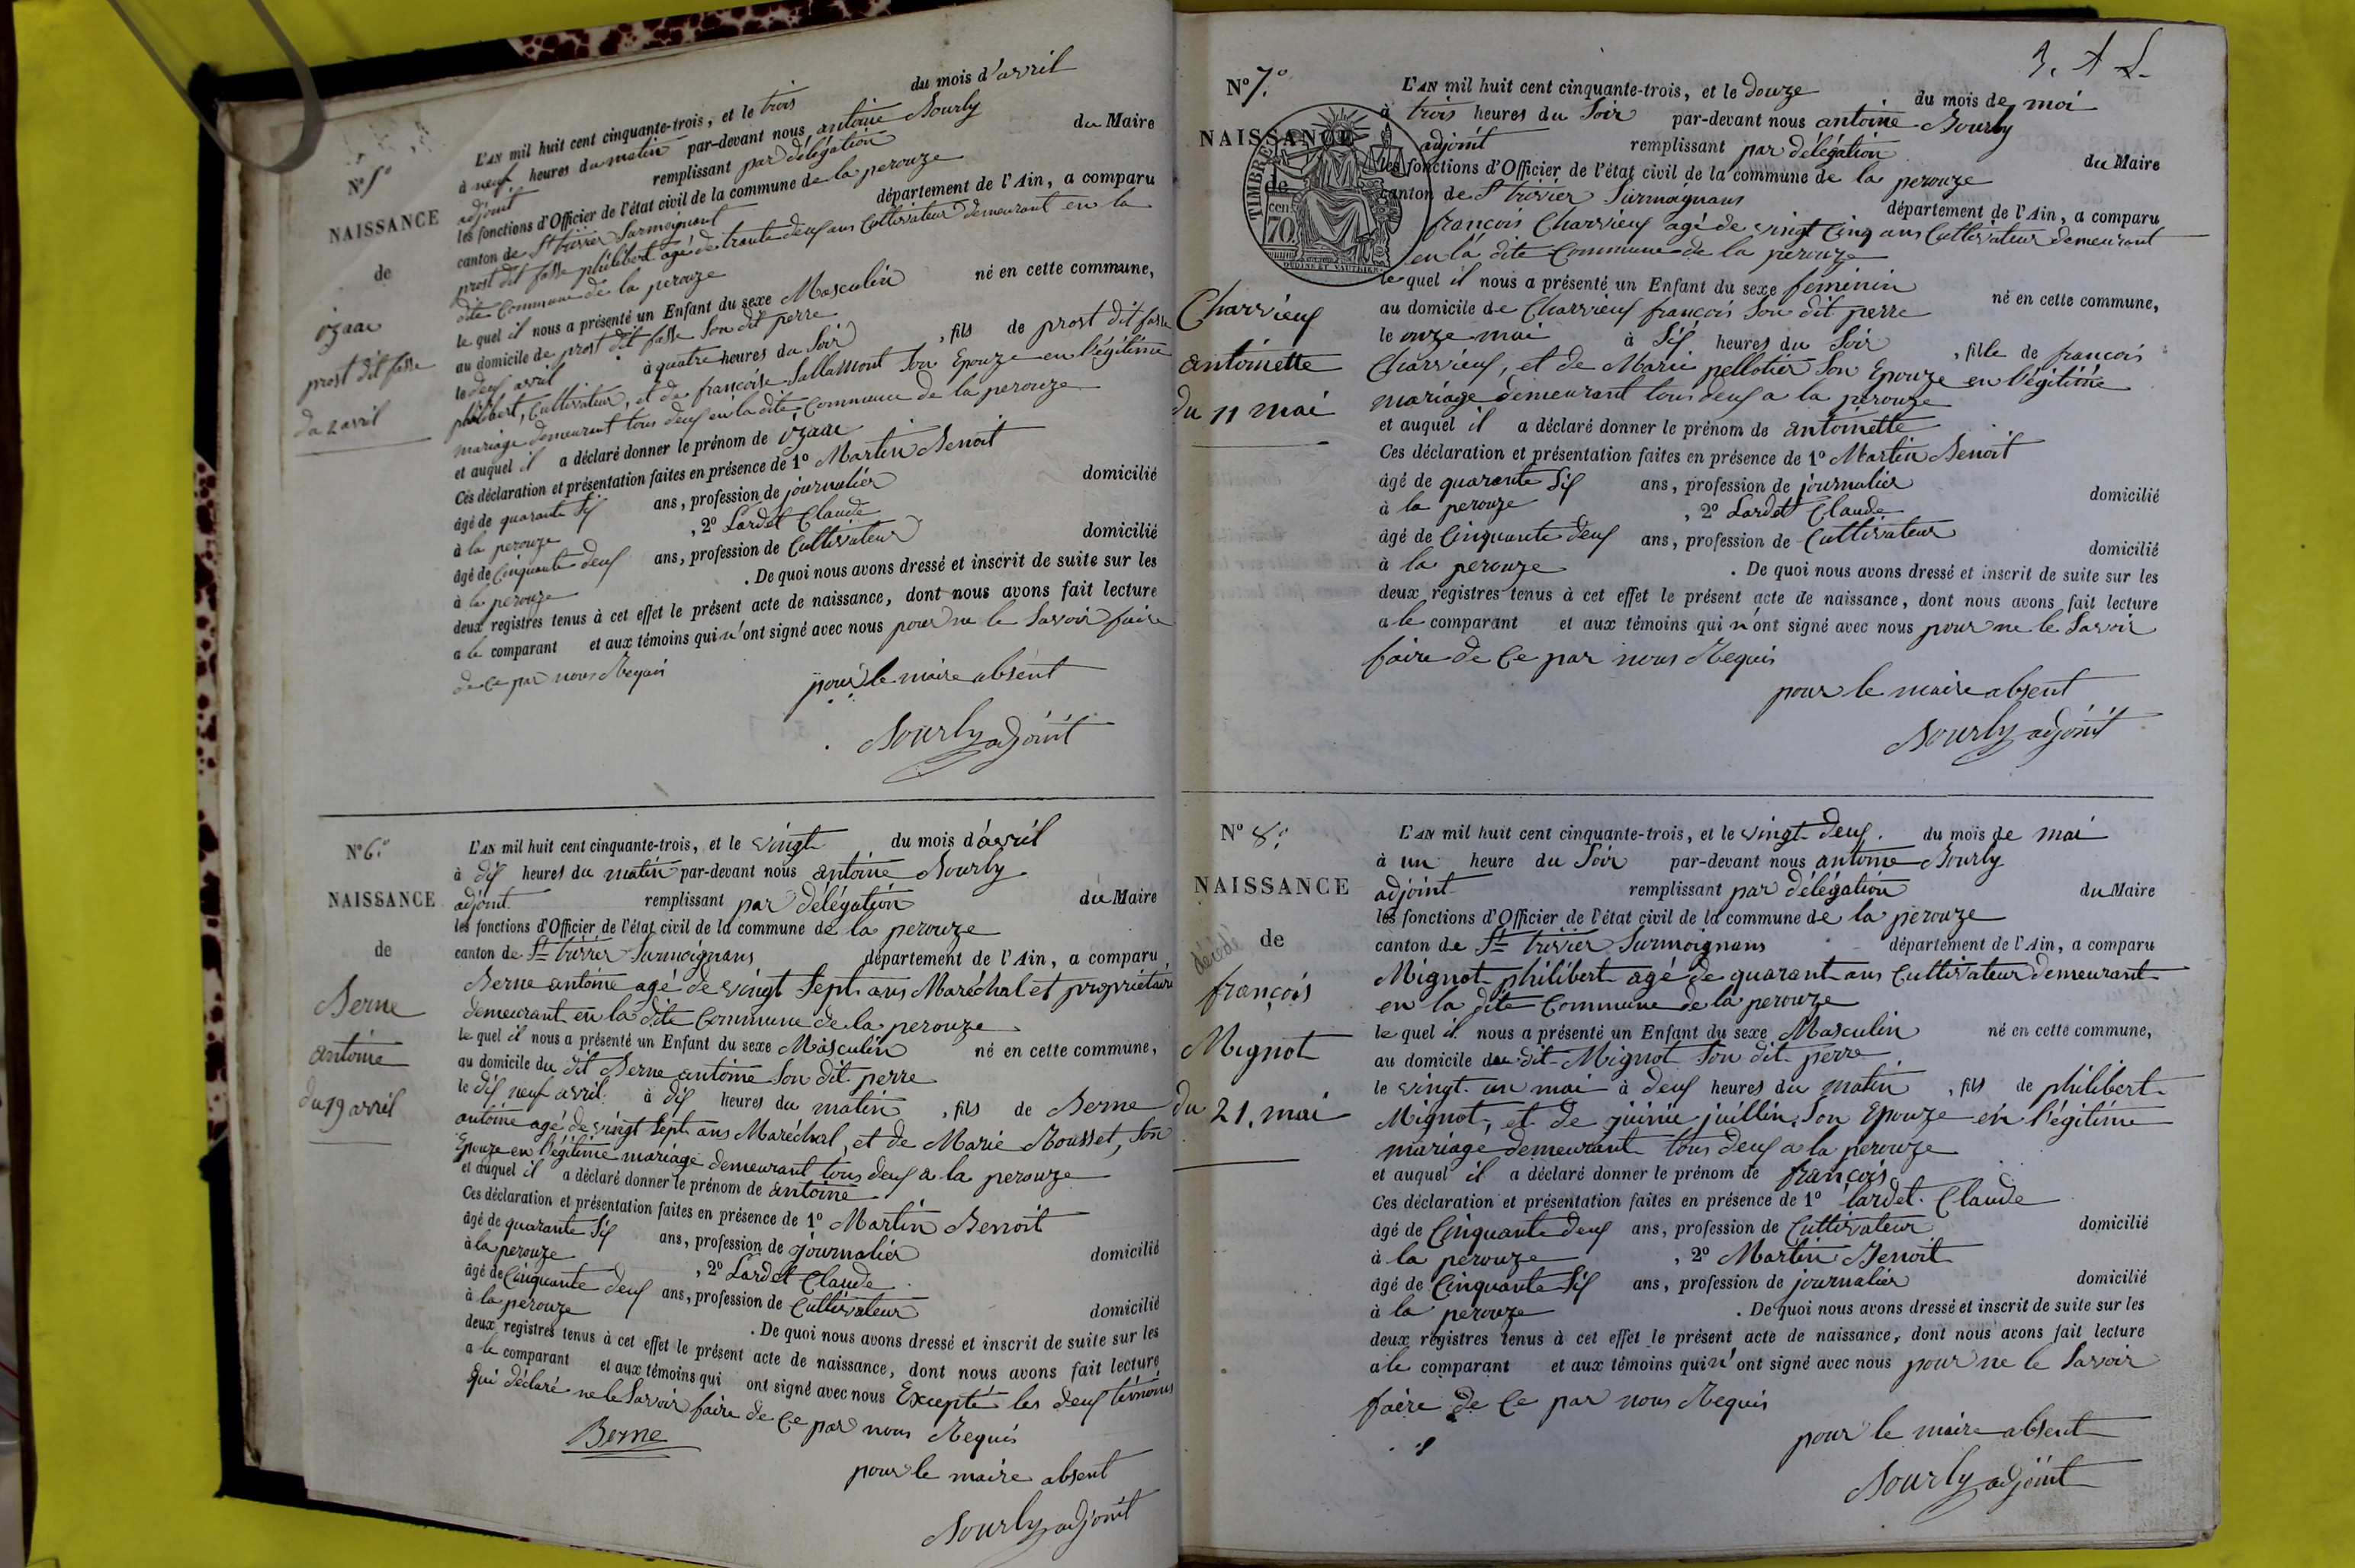 N° 5°
NAISSANCE
de
izaac
prost dit fasse
du 2 avril
L'AN mil huit cent cinquante-trois, et le trois du mois d'avril
à neuf heures du matin par-devant nous antoine Sourly
adjoint remplissant par délégation du Maire
les fonctions d'Officier de l'état civil de la commune de la perouze
canton de St trivier Surmoignant département de l'Ain, a comparu
prost dit fasse philibert agé de trante deux ans Cultivateur demeurant en la
dite Commune de la perouze
le quel il nous a présenté un Enfant du sexe Masculin né en cette commune,
au domicile de prost dit fasse Son dit perre
le deux avril à quatre heures du Soir, fils de prost dit fasse
philibert, Cultivateur, et de françoise Sallamont Son Epouze en l'égitime
mariage demeurant tous deux en la dite Commune de la perouze
et auquel il a déclaré donner le prénom de izaac
Ces déclaration et présentation faites en présence de 1° Martin Benoit
âgé de quarante Six ans, profession de journalier domicilié
à la perouze, 2° Lardet Claude
âgé de Cinquante deux ans, profession de Cultivateur domicilié
à la perouze. De quoi nous avons dressé et inscrit de suite sur les
deux registres tenus à cet effet le présent acte de naissance, dont nous avons fait lecture
a le comparant et aux témoins qui n'ont signé avec nous pour ne le Savoir faire
de Ce par nous Requis
pour le maire absent
Sourly adjoint
N° 6°
NAISSANCE
de
Berne
antoine
du 19 avril
L'AN mil huit cent cinquante-trois, et le vingt du mois d'avril
à dix heures du matin par-devant nous antoine Sourly
adjoint remplissant par délégation du Maire
les fonctions d'Officier de l'état civil de la commune de la perouze
canton de St trivier Surmoignans département de l'Ain, a comparu
Berne antoine agé de vingt Sept ans Maréchal et propriétaire
demeurant en la dite Commune de la perouze
le quel il nous a présenté un Enfant du sexe Masculin né en cette commune,
au domicile du dit Berne antoine Son dit perre
le dix neuf avril à dix heures du matin, fils de Berne
antoine agé de vingt Sept ans Maréchal, et de Marie Rousset, Son
Epouze en l'égitime mariage demeurant tous deux a la perouze
et auquel il a déclaré donner le prénom de antoine
Ces déclaration et présentation faites en présence de 1° Martin Benoit
âgé de quarante Six ans, profession de journalier domicilié
à la perouze, 2° Lardet Claude
âgé de Cinquante deux ans, profession de Cultivateur domicilié
à la perouze. De quoi nous avons dressé et inscrit de suite sur les
deux registres tenus à cet effet le présent acte de naissance, dont nous avons fait lecture
a le comparant et aux témoins qui ont signé avec nous Excepté les deux témoins
qui déclaré ne le Savoir faire de Ce par nous Requis
Berne
pour le maire absent
Sourly adjoint
N° 7°
NAISSANCE
de
TIMBRE
70
Charvieux
antoinette
du 11 mai
L'AN mil huit cent cinquante-trois, et le douze du mois de moi
à trois heures du Soir par-devant nous antoine Sourly
adjoint remplissant par délégation du Maire
les fonctions d'Officier de l'état civil de la commune de la perouze
canton de St trivier Surmoignans département de l'Ain, a comparu
françois Charvieux agé de vingt Cinq ans Cultivateur demeurant
en la dite Commune de la perouze
le quel il nous a présenté un Enfant du sexe feminin né en cette commune,
au domicile de Charvieux françois Son dit perre
le onze mai à Six heures du Soir, fille de françois
Charvieux, et de Marie pellotier Son Epouze en l'égitime
mariage demeurant tous deux a la perouze
et auquel il a déclaré donner le prénom de antoinette
Ces déclaration et présentation faites en présence de 1° Martin Benoit
âgé de quarante Six ans, profession de journalier domicilié
à la perouze, 2° Lardet Claude
âgé de Cinquante deux ans, profession de Cultivateur domicilié
à la perouze. De quoi nous avons dressé et inscrit de suite sur les
deux registres tenus à cet effet le présent acte de naissance, dont nous avons fait lecture
a le comparant et aux témoins qui n'ont signé avec nous pour ne le Savoir
faire de Ce par nous Requis
pour le maire absent
Sourly adjoint
N° 8°
NAISSANCE
de
décédé
françois
Mignot
du 21 mai
L'AN mil huit cent cinquante-trois, et le vingt deux du mois de mai
à un heure du Soir par-devant nous antoine Sourly
adjoint remplissant par délégation du Maire
les fonctions d'Officier de l'état civil de la commune de la perouze
canton de St trivier Surmoignans département de l'Ain, a comparu
Mignot philibert agé de quarant ans Cultivateur demeurant
en la dite Commune de la perouze
le quel il nous a présenté un Enfant du sexe Masculin né en cette commune,
au domicile du dit Mignot Son dit perre
le vingt un mai à deux heures du matin, fils de philibert
Mignot, et de juillin Son Epouze en l'égitime
mariage demeurant tous deux a la perouze
et auquel il a déclaré donner le prénom de françois
Ces déclaration et présentation faites en présence de 1° lardet Claude
âgé de Cinquante deux ans, profession de Cultivateur domicilié
à la perouze, 2° Martin Benoit
âgé de Cinquante Six ans, profession de journalier domicilié
à la perouze. De quoi nous avons dressé et inscrit de suite sur les
deux registres tenus à cet effet le présent acte de naissance, dont nous avons fait lecture
a le comparant et aux témoins qui n'ont signé avec nous pour ne le Savoir
faire de Ce par nous Requis
pour le maire absent
Sourly adjoint